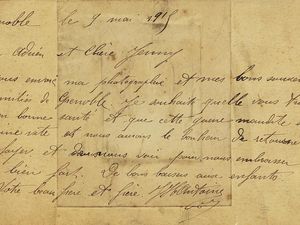 noble le 9 mai 1915
Adrien et Chère Jenny
ous envoie ma photographie et mes bons souve
amitiés de Grenoble. Je souhaite quelle vous
en bonne santé et que cette guerre maudite
vite et nous aurons le bonheur de retourne
foyer et vous voir pour nous embrasser
bien fort. De bons baisers aux enfants
Votre beau frère et frère